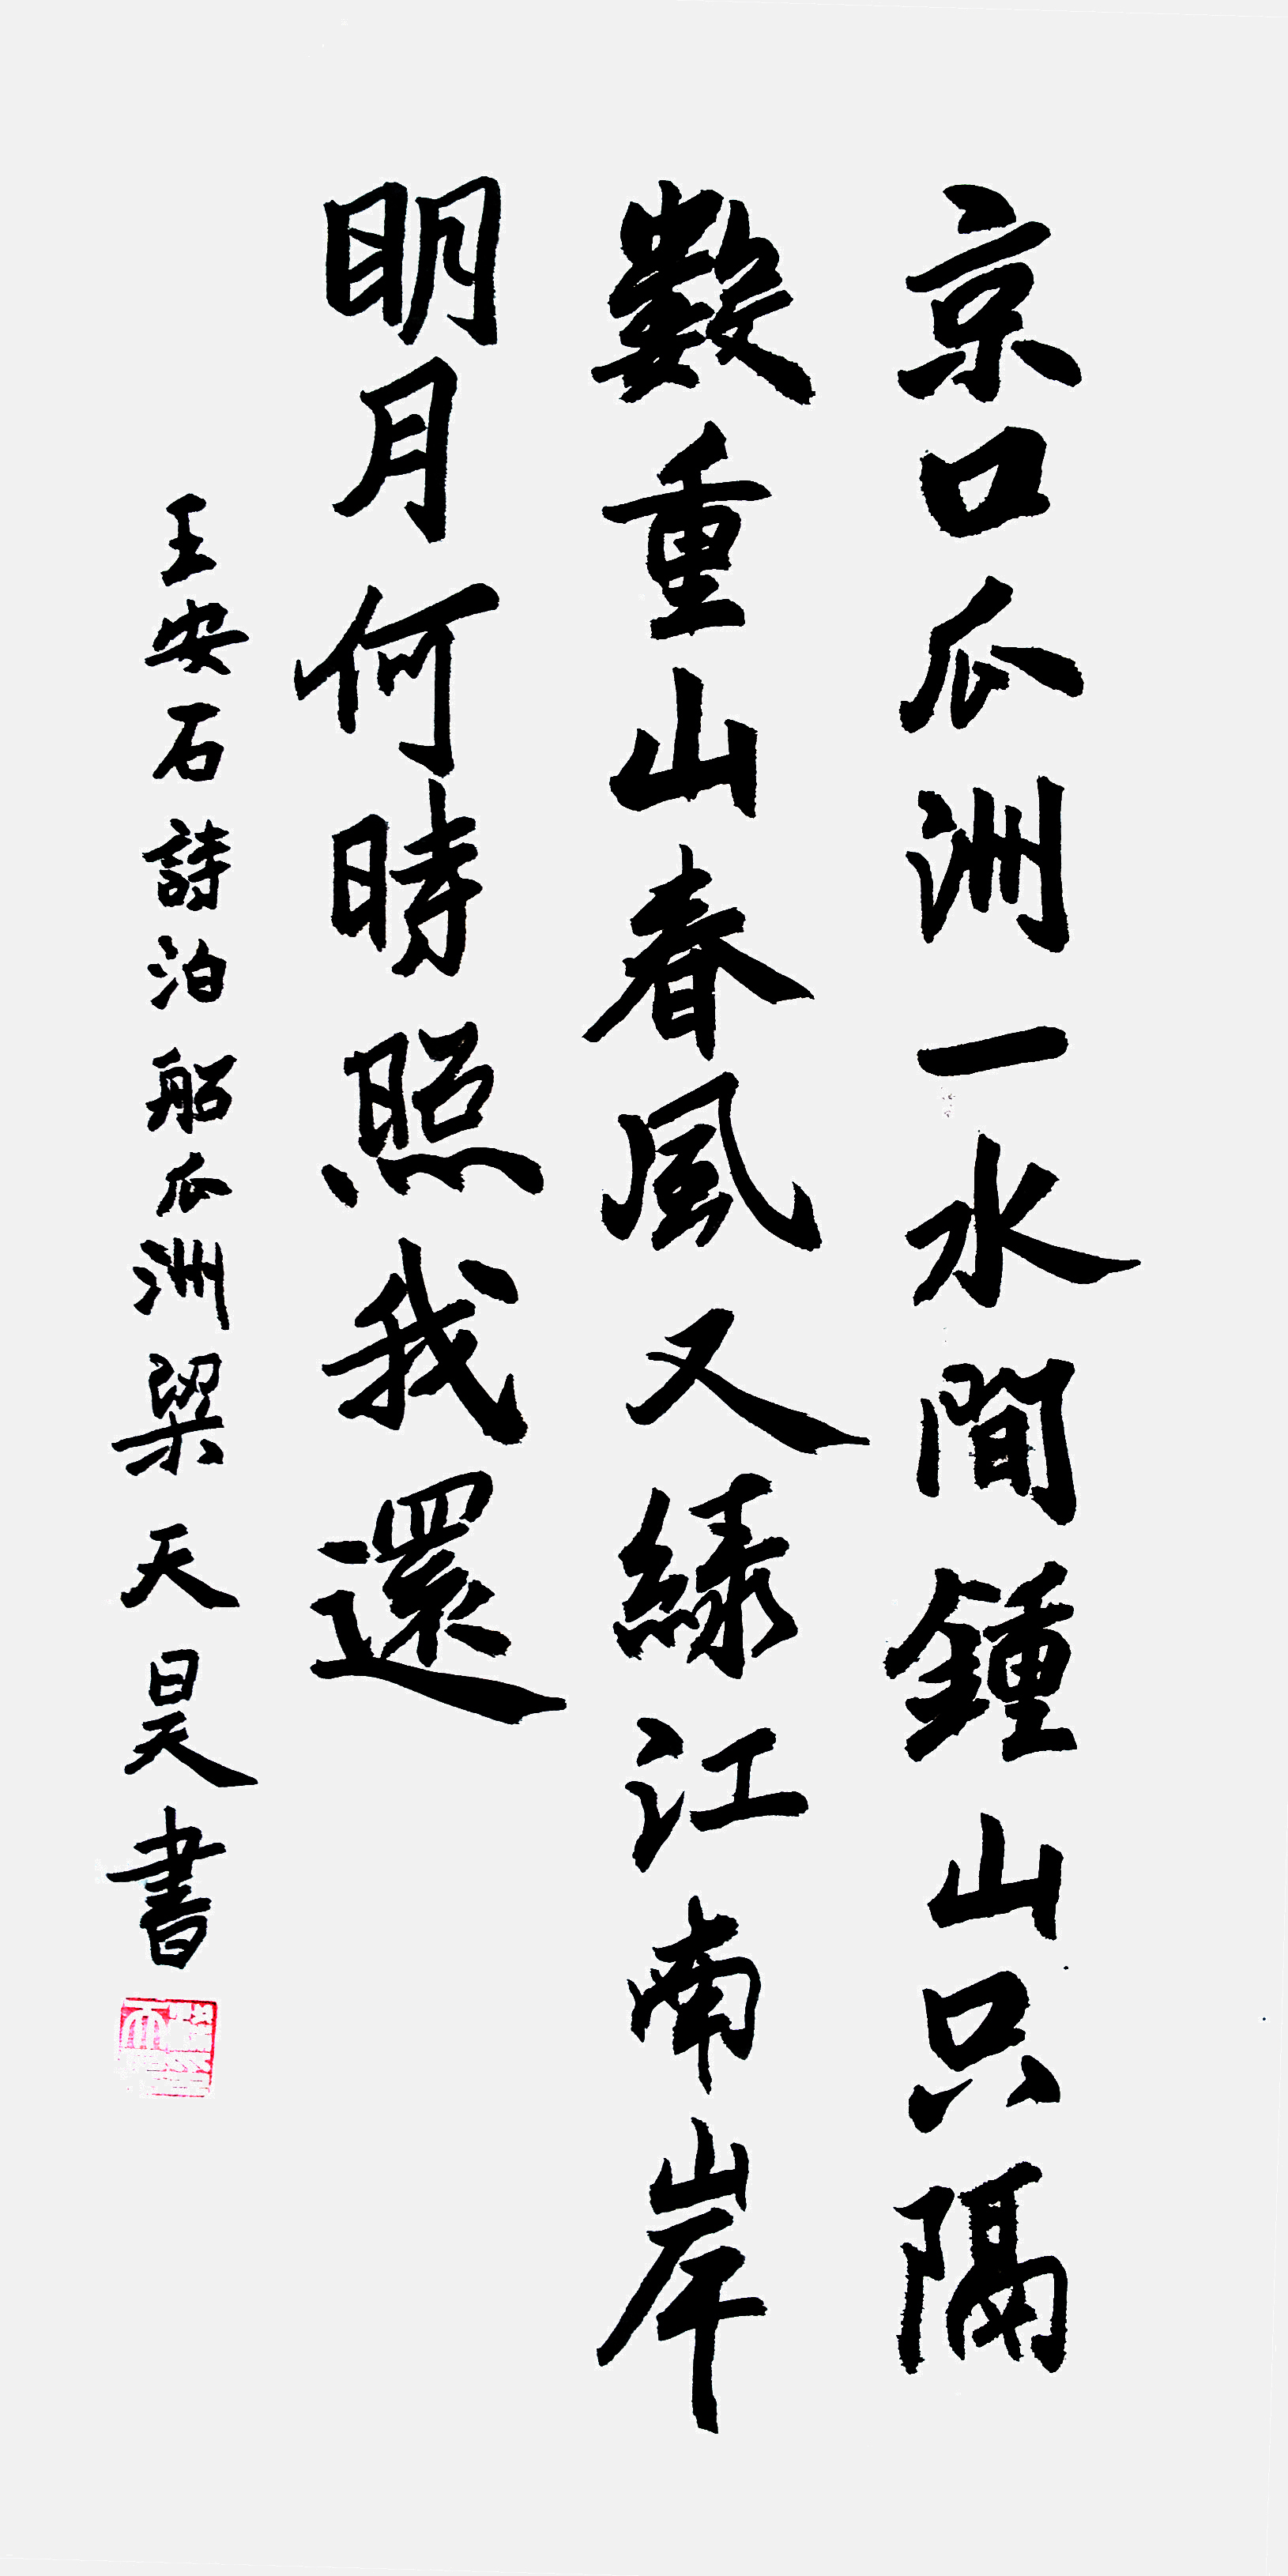 京口瓜洲一水間鍾山只隔
數重山春風又綠江南岸
明月何時照我還
王安石詩泊船瓜洲梁天昊書